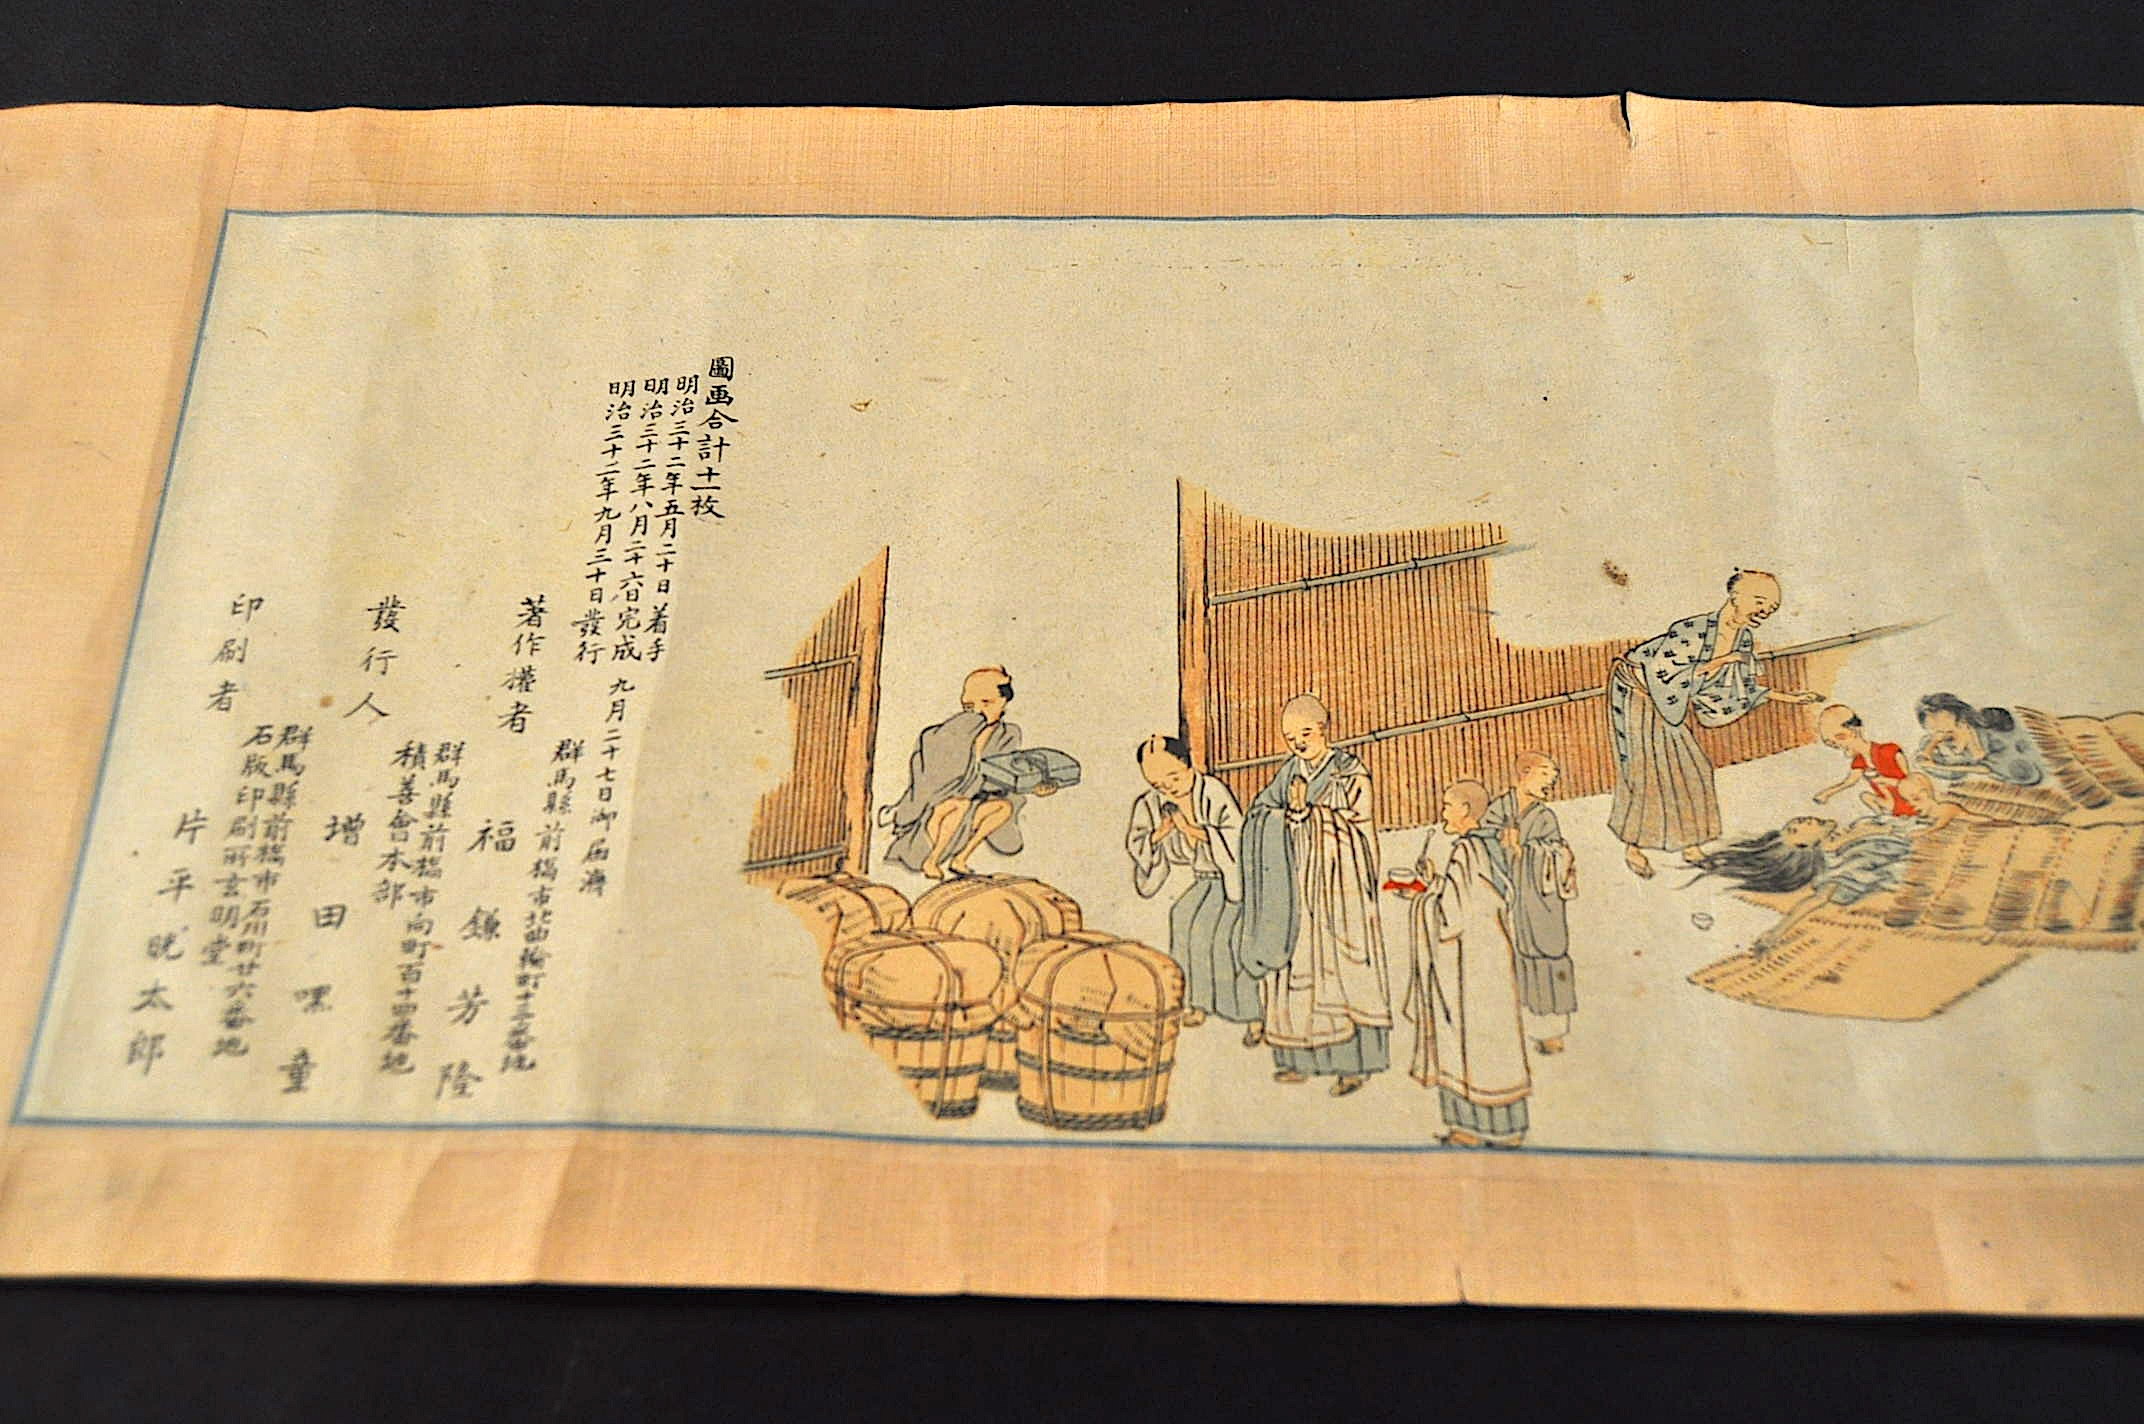 圖画合計十一枚
明治三十二年五月二十日着手
明治三十二年八月二十六日完成 九月二十七日御届濟
明治三十二年九月三十日發行
著作權者
群馬縣前橋市北曲輪町十三番地
福鎌芳隆
發行人
群馬縣前橋市向町百十四番地
積善會本部
増田嘿童
印刷者
群馬縣前橋市石川町廿六番地
石版印刷所玄明堂
片平晄太郎